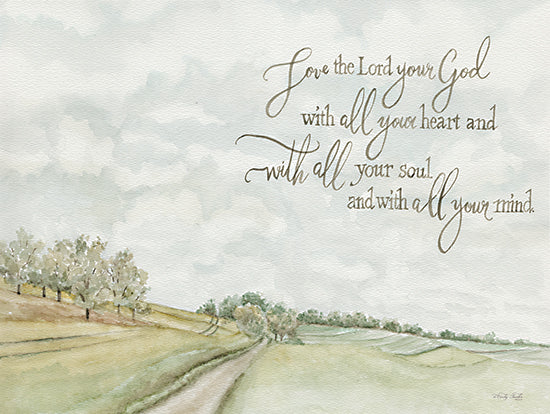 Love the Lord your God
with all your heart and
with all your soul
and with all your mind.